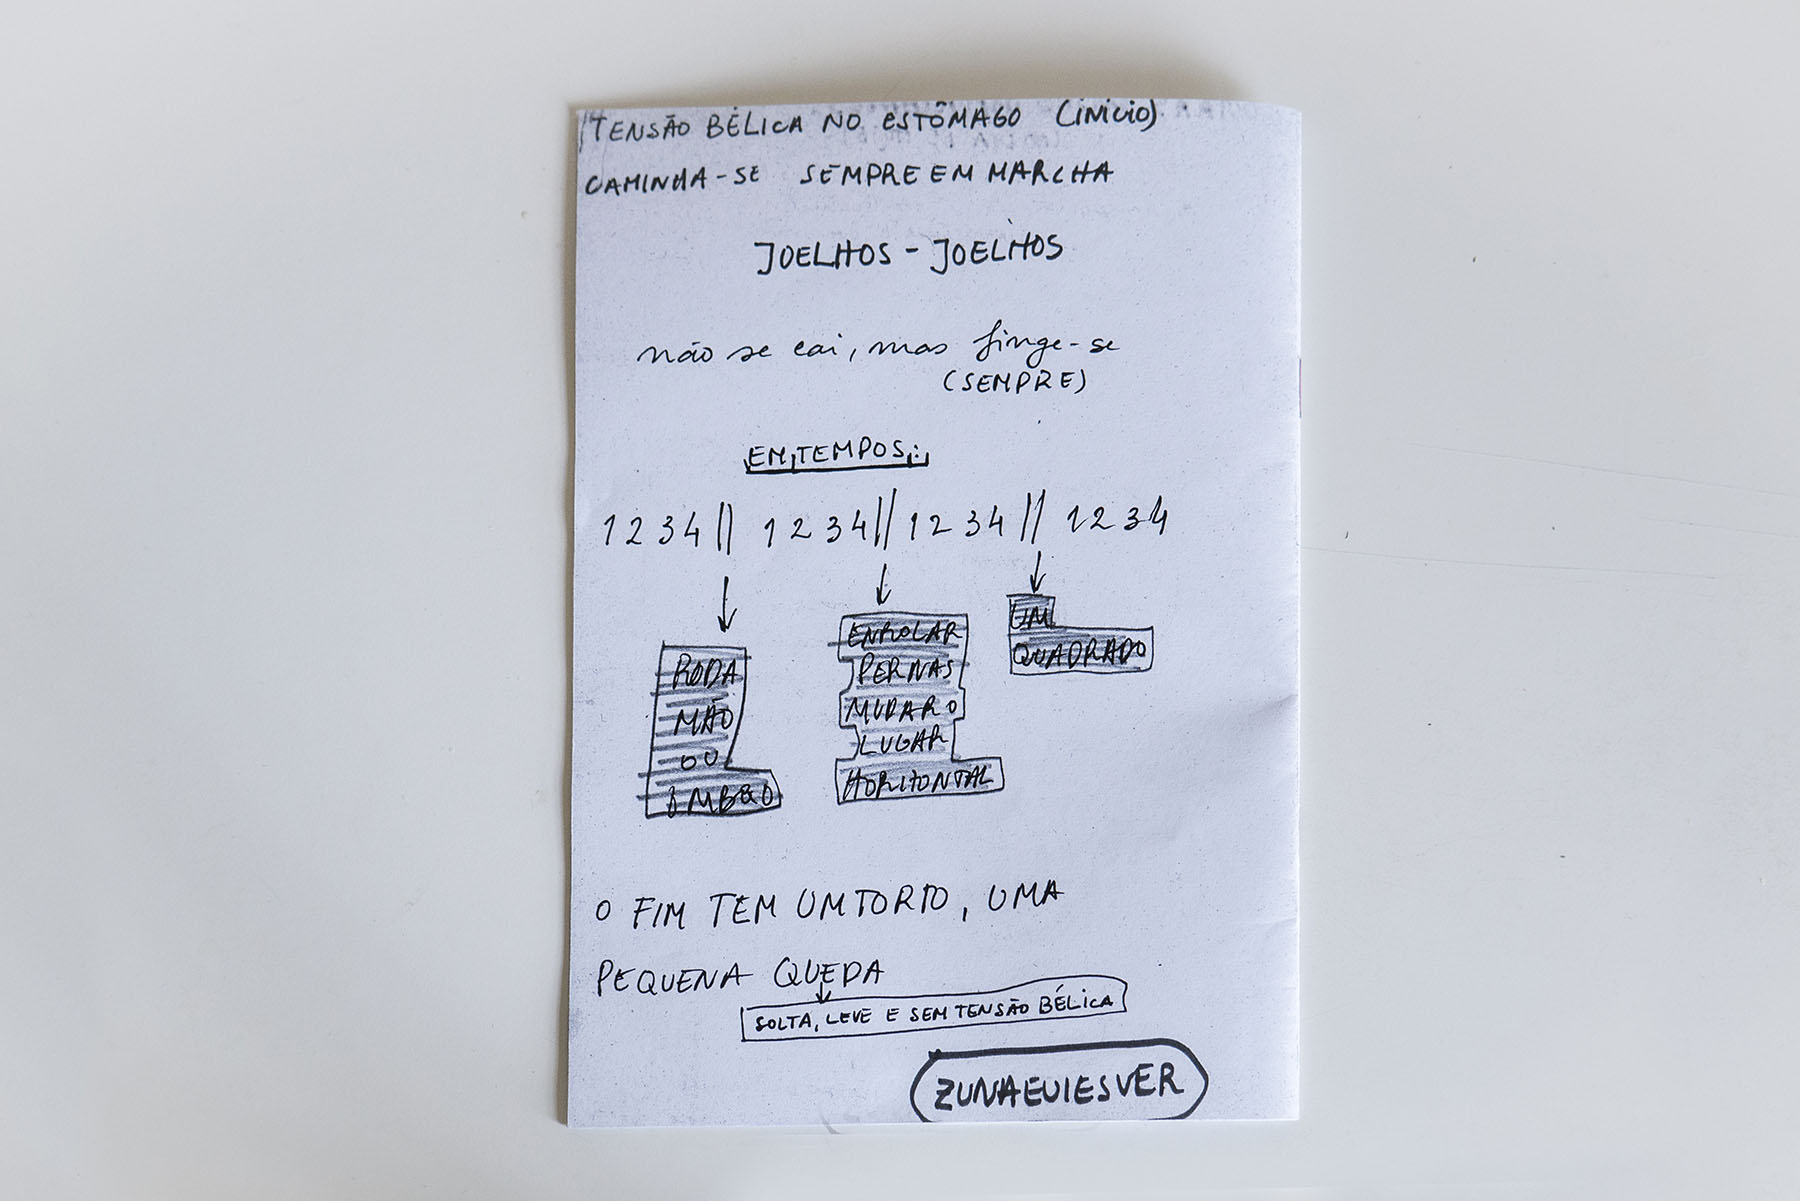 TENSÃO BÉLICA NO ESTÔMAGO (INICIO)
CAMINHA-SE SEMPRE EM MARCHA
JOELHOS - JOELHOS
não se cai, mas finge-se
(SEMPRE)
EM TEMPOS:
1 2 3 4 || 1 2 3 4 || 1 2 3 4 || 1 2 3 4
RODA
MÃO
OU
OMBRO
ENROLAR
PERNAS
MUDAR O
LUGAR
HORIZONTAL
UM
QUADRADO
O FIM TEM UM TORTO, UMA
PEQUENA QUEDA
SOLTA, LEVE E SEM TENSÃO BÉLICA
ZUNAEUIESVER